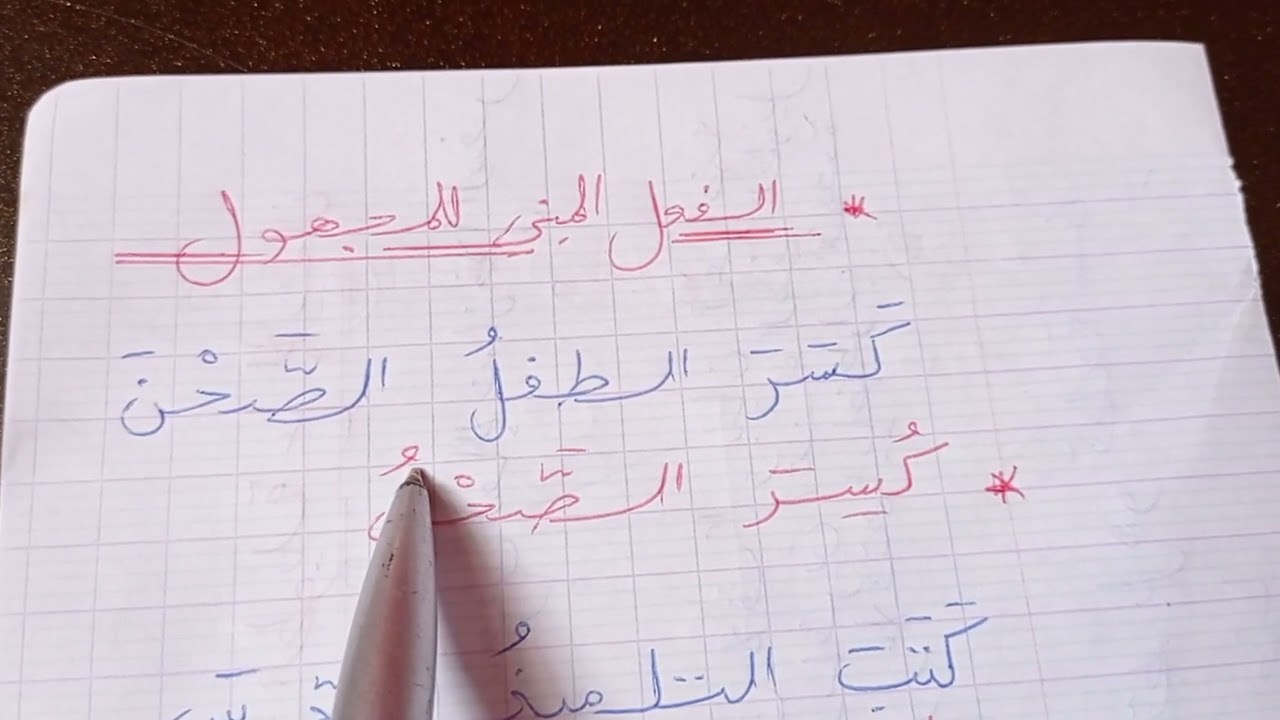 * الفعل المبني للمجهول
كَسَرَ الطفلُ الصَّحْنَ
* كُسِرَ الصَّحْنُ
كَتَبَ التلميذُ